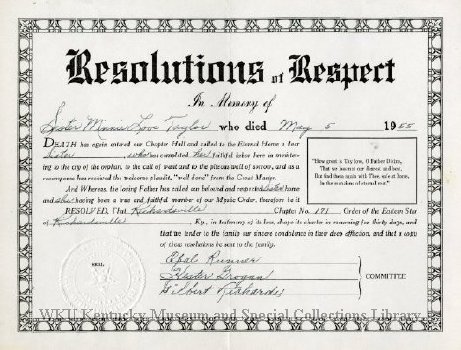 Resolutions of Respect
In Memory of
Sister Minnie Love Taylor who died May 5 1955
DEATH has again entered our Chapter Hall and called to the Eternal Home a loved
Sister, who has completed her faithful labor here in minister-
ing to the cry of the orphan, to the call of want and to the piteous wail of sorrow, and as a
recompense has received the welcome plaudit, "well done" from the Great Master.
And Whereas, the loving Father has called our beloved and respected Sister home
and she having been a true and faithful member of our Mystic Order, therefore be it
"How great is Thy love, O Father Divine,
That we lament our dearest and best,
But find them again with Thee, safe at home,
In the mansions of eternal rest."
RESOLVED, That Richardsville Chapter No. 171 Order of the Eastern Star
of Richardsville Ky., in testimony of its loss, drape its charter in mourning for thirty days, and
that we tender to the family our sincere condolence in their deep affliction, and that a copy
of these resolutions be sent to the family.
SEAL
Opal Runner
Hester Grogan
Gilbert Richards
COMMITTEE
WKU Kentucky Museum and Special Collections Library